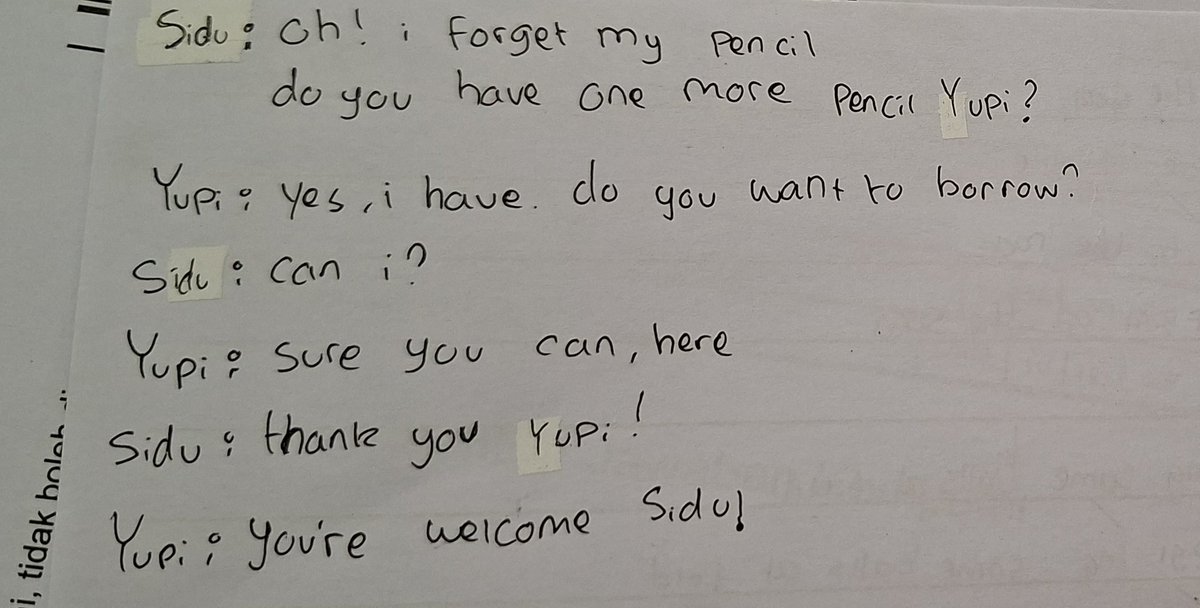 Sidu : Oh! i forget my pencil
do you have one more pencil Yupi?
Yupi : Yes, i have. do you want to borrow?
Sidu : can i?
Yupi : sure you can, here
Sidu : thank you Yupi!
Yupi : you're welcome Sidu!
i, tidak boleh